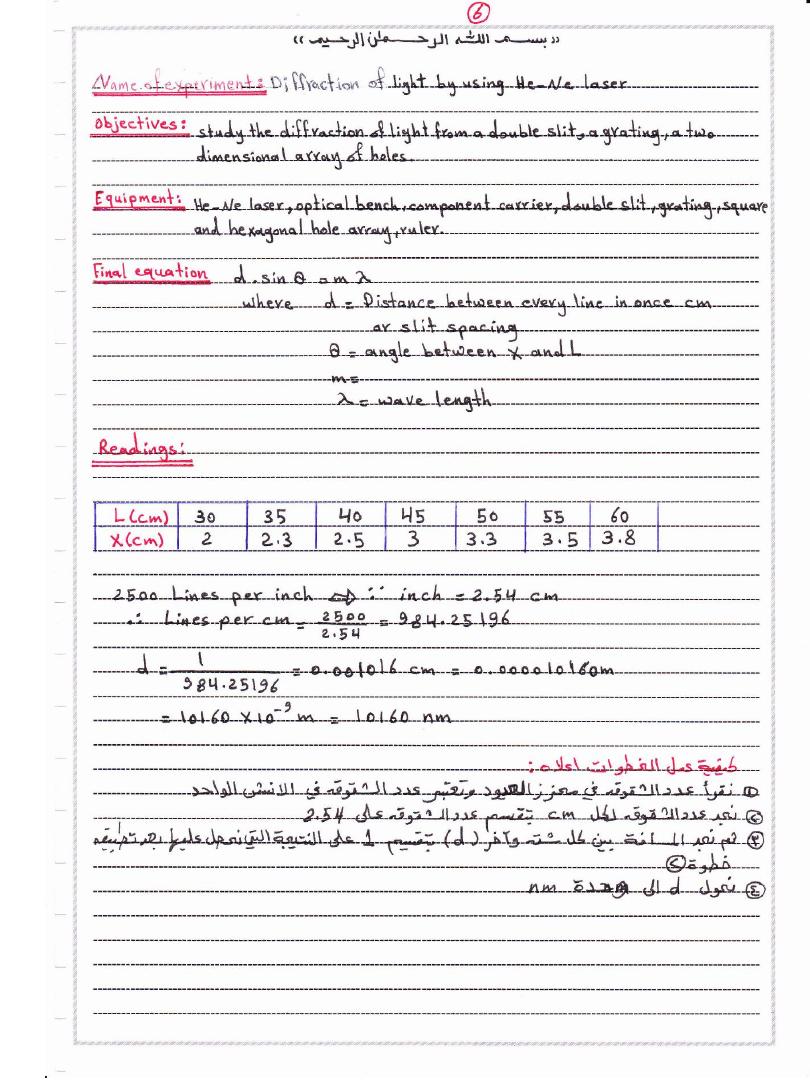 6
(( بسم الله الرحمن الرحيم ))
Name of experiment: Diffraction of light by using He-Ne laser
Objectives: study the diffraction of light from a double slit, a grating, a two
dimensional array of holes.
Equipment: He-Ne laser, optical bench, component carrier, double slit, grating, square
and hexagonal hole array, ruler.
Final equation d . sin θ = m λ
where d = Distance between every line in once cm
or slit spacing
θ = angle between X and L
m =
λ = wave length
Readings:
L(cm) 30 35 40 45 50 55 60
X(cm) 2 2.3 2.5 3 3.3 3.5 3.8
2500 Lines per inch ⇒ ∵ inch = 2.54 cm
∴ Lines per cm = 2500/2.54 = 984.25196
d = 1/984.25196 = 0.001016 cm = 0.000010160m
= 10160 X 10⁻⁹ m = 10160 nm
كيفية عمل الخطوات اعلاه :
① نقرأ عدد الشقوق في محزز الحيود وتعتبر عدد الشقوق في الانش الواحد
② نجد عدد الشقوق لكل cm بتقسيم عدد الشقوق على 2.54
③ ثم نجد المسافة بين كل شق وآخر (d) بتقسيم 1 على النتيجة التي نحصل عليها بعد تطبيق
خطوة ②
④ نحول d الى وحدة nm